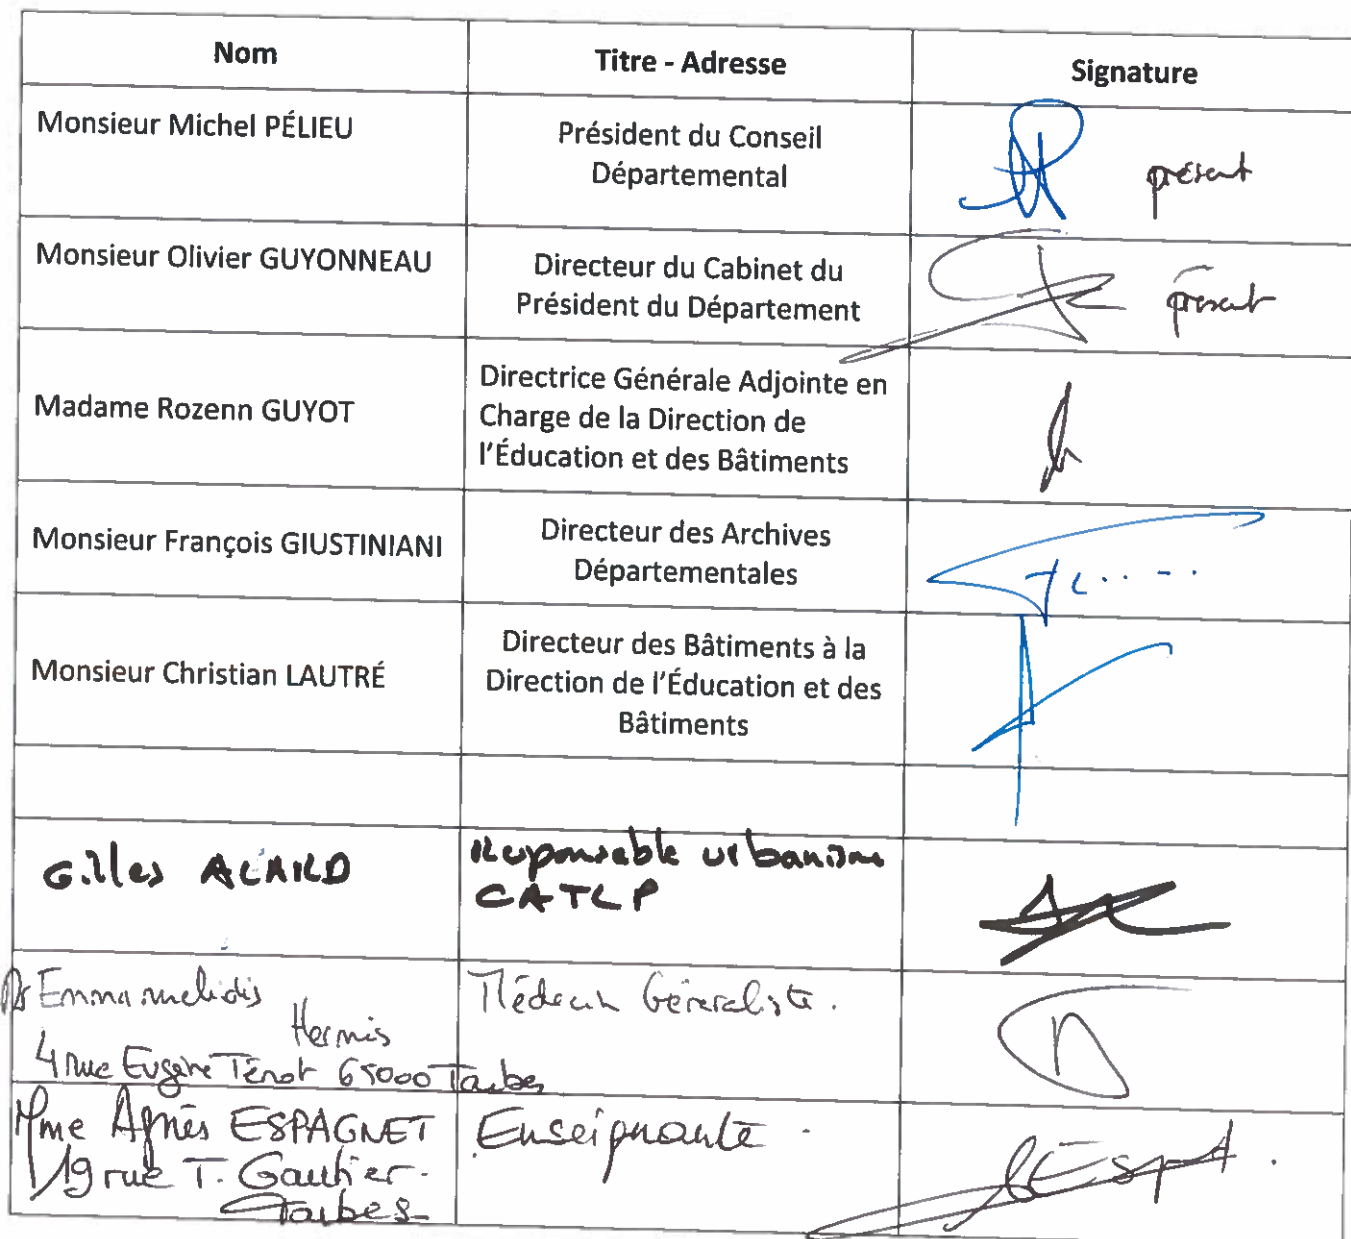 Nom
Titre - Adresse
Signature
Monsieur Michel PÉLIEU
Président du Conseil
Départemental
présent
Monsieur Olivier GUYONNEAU
Directeur du Cabinet du
Président du Département
présent
Madame Rozenn GUYOT
Directrice Générale Adjointe en
Charge de la Direction de
l'Éducation et des Bâtiments
Monsieur François GIUSTINIANI
Directeur des Archives
Départementales
Monsieur Christian LAUTRÉ
Directeur des Bâtiments à la
Direction de l'Éducation et des
Bâtiments
Gilles
Responsable urbanisme
CATLP
Dr
Hermis
4 rue Eugène Ténot 65000 Tarbes
Médecin Généraliste.
Mme Agnès ESPAGNET
19 rue T. Gautier.
Tarbes
Enseignante.